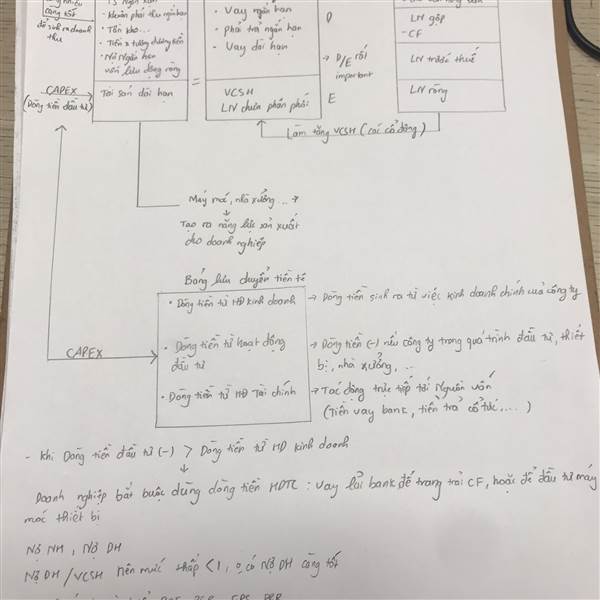 càng nhiều
càng tốt
để sinh ra doanh
thu
TS Ngắn hạn
• Khoản phải thu ngắn hạn
• Tồn kho...
• Tiền & tương đương tiền
- Nợ Ngắn hạn
Vốn lưu động ròng
Tài sản dài hạn
=
• Vay ngắn hạn
• phải trả ngắn hạn
- Vay dài hạn
VCSH
LN chưa phân phối
D
→ D/E rất
important
E
LN gộp
- CF
LN trước thuế
LN ròng
CAPEX
(Dòng tiền đầu tư)
Làm tăng VCSH (các cổ đông)
Máy móc, nhà xưởng ...
Tạo ra năng lực sản xuất
cho doanh nghiệp
Bảng lưu chuyển tiền tệ
• Dòng tiền từ HĐ kinh doanh → Dòng tiền sinh ra từ việc kinh doanh chính của công ty
CAPEX
• Dòng tiền từ hoạt động → Dòng tiền (-) nếu công ty trong quá trình đầu tư, thiết
đầu tư bị, nhà xưởng, ...
• Dòng tiền từ HĐ Tài chính → Tác động trực tiếp tới Nguồn vốn
(Tiền vay bank, tiền trả cổ tức, ...)
- Khi Dòng tiền đầu tư (-) > Dòng tiền từ HĐ kinh doanh
Doanh nghiệp bắt buộc dùng dòng tiền HĐTC : vay lãi bank để trang trải CF, hoặc để đầu tư máy
móc thiết bị
Nợ NH, Nợ DH
Nợ DH/VCSH nên mức thấp <1, o có Nợ DH càng tốt